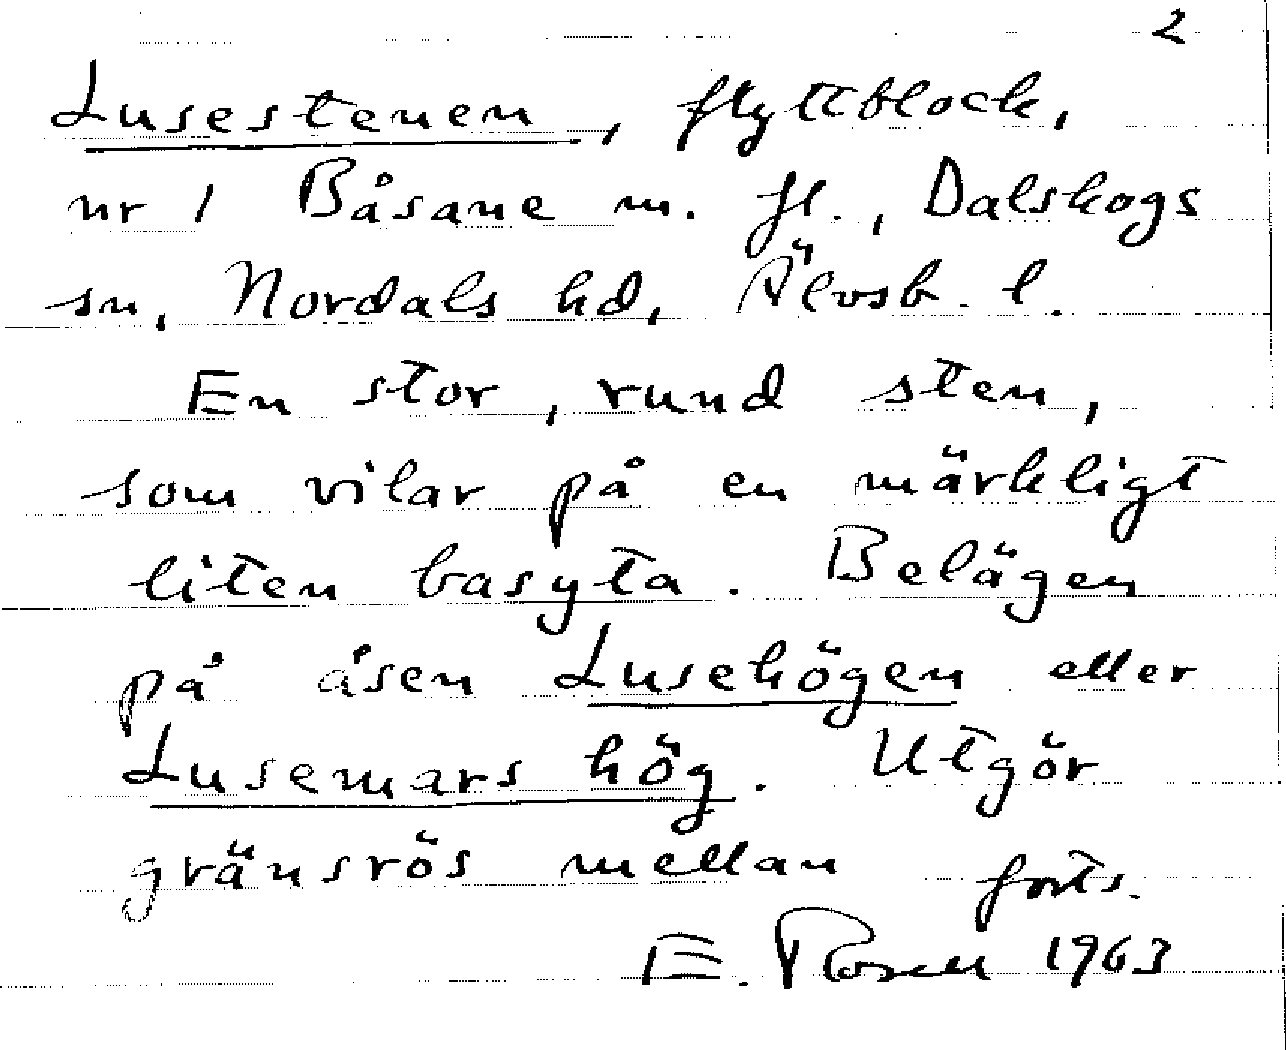 2
Lusestenen, flyttblock,
nr 1 Båsane m. fl., Dalskogs
sn, Nordals hd, Älvsb. l.
En stor, rund sten,
som vilar på en märkligt
liten basyta. Belägen
på åsen Lusehögen eller
Lusemars hög. Utgör
gränsrös mellan forts.
E. Rosell 1963